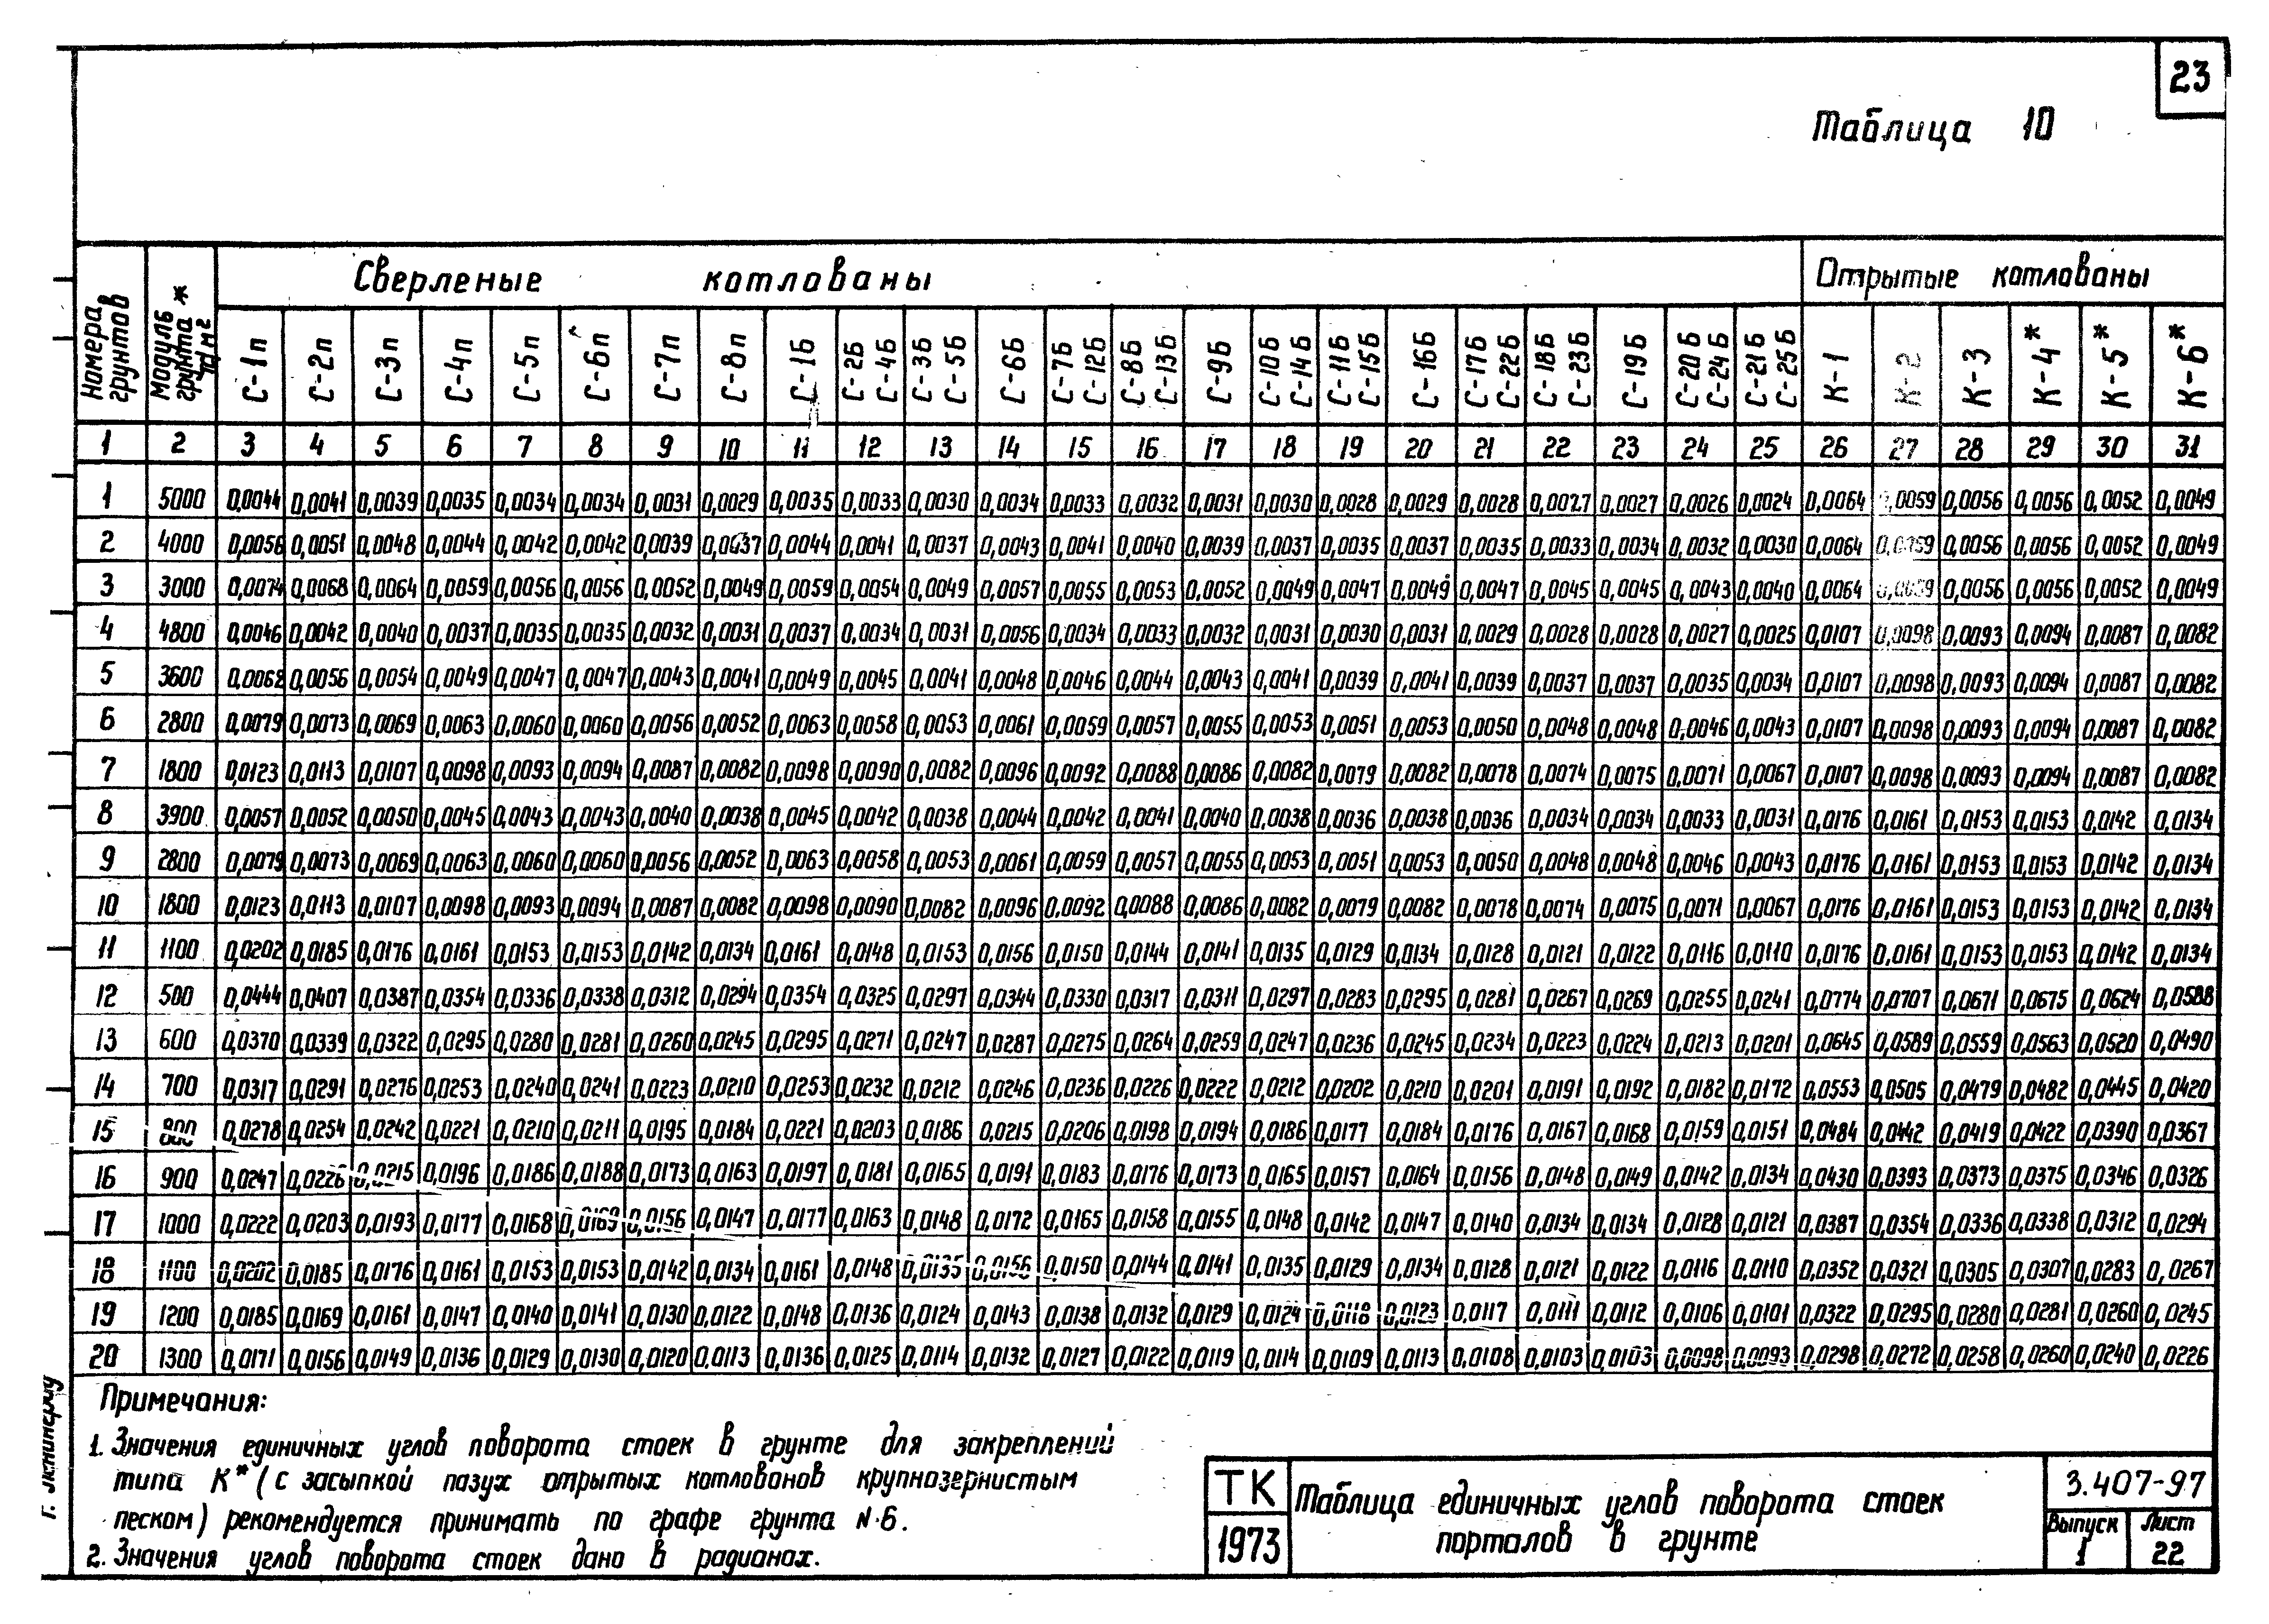 23
Таблица 10
Номера грунтов
Модуль грунта *
Сверленые котлованы
Открытые котлованы
С-1п С-2п С-3п С-4п С-5п С-6п С-7п С-8п С-1Б С-2Б С-4Б С-3Б С-5Б С-6Б С-7Б С-12Б С-8Б С-13Б С-9Б С-10Б С-14Б С-11Б С-15Б С-16Б С-17Б С-22Б С-18Б С-23Б С-19Б С-20Б С-24Б С-21Б С-25Б К-1 К-2 К-3 К-4* К-5* К-6*
1 2 3 4 5 6 7 8 9 10 11 12 13 14 15 16 17 18 19 20 21 22 23 24 25 26 27 28 29 30 31
1 5000 0,0044 0,0041 0,0039 0,0035 0,0034 0,0034 0,0031 0,0029 0,0035 0,0033 0,0030 0,0034 0,0033 0,0032 0,0031 0,0030 0,0028 0,0029 0,0028 0,0027 0,0027 0,0026 0,0024 0,0064 0,0059 0,0056 0,0056 0,0052 0,0049
2 4000 0,0056 0,0051 0,0048 0,0044 0,0042 0,0042 0,0039 0,0037 0,0044 0,0041 0,0037 0,0043 0,0041 0,0040 0,0039 0,0037 0,0035 0,0037 0,0035 0,0033 0,0034 0,0032 0,0030 0,0064 0,0059 0,0056 0,0056 0,0052 0,0049
3 3000 0,0074 0,0068 0,0064 0,0059 0,0056 0,0056 0,0052 0,0049 0,0059 0,0054 0,0049 0,0057 0,0055 0,0053 0,0052 0,0049 0,0047 0,0049 0,0047 0,0045 0,0045 0,0043 0,0040 0,0064 0,0059 0,0056 0,0056 0,0052 0,0049
4 4800 0,0046 0,0042 0,0040 0,0037 0,0035 0,0035 0,0032 0,0031 0,0037 0,0034 0,0031 0,0056 0,0034 0,0033 0,0032 0,0031 0,0030 0,0031 0,0029 0,0028 0,0028 0,0027 0,0025 0,0107 0,0098 0,0093 0,0094 0,0087 0,0082
5 3600 0,0062 0,0056 0,0054 0,0049 0,0047 0,0047 0,0043 0,0041 0,0049 0,0045 0,0041 0,0048 0,0046 0,0044 0,0043 0,0041 0,0039 0,0041 0,0039 0,0037 0,0037 0,0035 0,0034 0,0107 0,0098 0,0093 0,0094 0,0087 0,0082
6 2800 0,0079 0,0073 0,0069 0,0063 0,0060 0,0060 0,0056 0,0052 0,0063 0,0058 0,0053 0,0061 0,0059 0,0057 0,0055 0,0053 0,0051 0,0053 0,0050 0,0048 0,0048 0,0046 0,0043 0,0107 0,0098 0,0093 0,0094 0,0087 0,0082
7 1800 0,0123 0,0113 0,0107 0,0098 0,0093 0,0094 0,0087 0,0082 0,0098 0,0090 0,0082 0,0096 0,0092 0,0088 0,0086 0,0082 0,0079 0,0082 0,0078 0,0074 0,0075 0,0071 0,0067 0,0107 0,0098 0,0093 0,0094 0,0087 0,0082
8 3900 0,0057 0,0052 0,0050 0,0045 0,0043 0,0043 0,0040 0,0038 0,0045 0,0042 0,0038 0,0044 0,0042 0,0041 0,0040 0,0038 0,0036 0,0038 0,0036 0,0034 0,0034 0,0033 0,0031 0,0176 0,0161 0,0153 0,0153 0,0142 0,0134
9 2800 0,0079 0,0073 0,0069 0,0063 0,0060 0,0060 0,0056 0,0052 0,0063 0,0058 0,0053 0,0061 0,0059 0,0057 0,0055 0,0053 0,0051 0,0053 0,0050 0,0048 0,0048 0,0046 0,0043 0,0176 0,0161 0,0153 0,0153 0,0142 0,0134
10 1800 0,0123 0,0113 0,0107 0,0098 0,0093 0,0094 0,0087 0,0082 0,0098 0,0090 0,0082 0,0096 0,0092 0,0088 0,0086 0,0082 0,0079 0,0082 0,0078 0,0074 0,0075 0,0071 0,0067 0,0176 0,0161 0,0153 0,0153 0,0142 0,0134
11 1100 0,0202 0,0185 0,0176 0,0161 0,0153 0,0153 0,0142 0,0134 0,0161 0,0148 0,0153 0,0156 0,0150 0,0144 0,0141 0,0135 0,0129 0,0134 0,0128 0,0121 0,0122 0,0116 0,0110 0,0176 0,0161 0,0153 0,0153 0,0142 0,0134
12 500 0,0444 0,0407 0,0387 0,0354 0,0336 0,0338 0,0312 0,0294 0,0354 0,0325 0,0297 0,0344 0,0330 0,0317 0,0311 0,0297 0,0283 0,0295 0,0281 0,0267 0,0269 0,0255 0,0241 0,0774 0,0707 0,0671 0,0675 0,0624 0,0588
13 600 0,0370 0,0339 0,0322 0,0295 0,0280 0,0281 0,0260 0,0245 0,0295 0,0271 0,0247 0,0287 0,0275 0,0264 0,0259 0,0247 0,0236 0,0245 0,0234 0,0223 0,0224 0,0213 0,0201 0,0645 0,0589 0,0559 0,0563 0,0520 0,0490
14 700 0,0317 0,0291 0,0276 0,0253 0,0240 0,0241 0,0223 0,0210 0,0253 0,0232 0,0212 0,0246 0,0236 0,0226 0,0222 0,0212 0,0202 0,0210 0,0201 0,0191 0,0192 0,0182 0,0172 0,0553 0,0505 0,0479 0,0482 0,0445 0,0420
15 800 0,0278 0,0254 0,0242 0,0221 0,0210 0,0211 0,0195 0,0184 0,0221 0,0203 0,0186 0,0215 0,0206 0,0198 0,0194 0,0186 0,0177 0,0184 0,0176 0,0167 0,0168 0,0159 0,0151 0,0484 0,0442 0,0419 0,0422 0,0390 0,0367
16 900 0,0247 0,0226 0,0215 0,0196 0,0186 0,0188 0,0173 0,0163 0,0197 0,0181 0,0165 0,0191 0,0183 0,0176 0,0173 0,0165 0,0157 0,0164 0,0156 0,0148 0,0149 0,0142 0,0134 0,0430 0,0393 0,0373 0,0375 0,0346 0,0326
17 1000 0,0222 0,0203 0,0193 0,0177 0,0168 0,0169 0,0156 0,0147 0,0177 0,0163 0,0148 0,0172 0,0165 0,0158 0,0155 0,0148 0,0142 0,0147 0,0140 0,0134 0,0134 0,0128 0,0121 0,0387 0,0354 0,0336 0,0338 0,0312 0,0294
18 1100 0,0202 0,0185 0,0176 0,0161 0,0153 0,0153 0,0142 0,0134 0,0161 0,0148 0,0135 0,0156 0,0150 0,0144 0,0141 0,0135 0,0129 0,0134 0,0128 0,0121 0,0122 0,0116 0,0110 0,0352 0,0321 0,0305 0,0307 0,0283 0,0267
19 1200 0,0185 0,0169 0,0161 0,0147 0,0140 0,0141 0,0130 0,0122 0,0148 0,0136 0,0124 0,0143 0,0138 0,0132 0,0129 0,0124 0,0118 0,0123 0,0117 0,0111 0,0112 0,0106 0,0101 0,0322 0,0295 0,0280 0,0281 0,0260 0,0245
20 1300 0,0171 0,0156 0,0149 0,0136 0,0129 0,0130 0,0120 0,0113 0,0136 0,0125 0,0114 0,0132 0,0127 0,0122 0,0119 0,0114 0,0109 0,0113 0,0108 0,0103 0,0103 0,0098 0,0093 0,0298 0,0272 0,0258 0,0260 0,0240 0,0226
Примечания:
1. Значения единичных углов поворота стоек в грунте для закреплений
типа К* (с засыпкой пазух открытых котлованов крупнозернистым
песком) рекомендуется принимать по графе грунта №6.
2. Значения углов поворота стоек дано в радианах.
ТК
1973
Таблица единичных углов поворота стоек
порталов в грунте
3.407-97
Выпуск 1
Лист 22